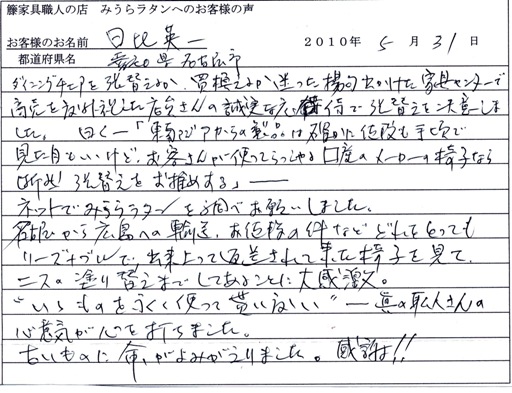 籐家具職人の店 みうらラタンへのお客様の声
お客様のお名前 日比英一 2010年 5月 31日
都道府県名 愛知県名古屋市
ダイニングチェアを張替えるか、買換えるか迷った揚句出かけた家具センターで
商売を度外視した店員さんの誠実な応待で張替えを決意しま
した。曰く―「東南アジアからの製品は確かに値段も手頃で
見た目もいいけど、お客さんが使ってらっしゃる国産のメーカーの椅子なら
断然張替えをお推めする」―
ネットでみうらラタンを調べお願いしました。
名古屋から広島への輸送、お値段の件などどれをとっても
リーズナブルで、出来上って返送されて来た椅子を見て、
ニスの塗り替えまでしてあることに大感激。
"いいものを永く使って貰いたい"―真の職人さんの
心意気が心を打ちました。
古いものに命がよみがえりました。感謝!!